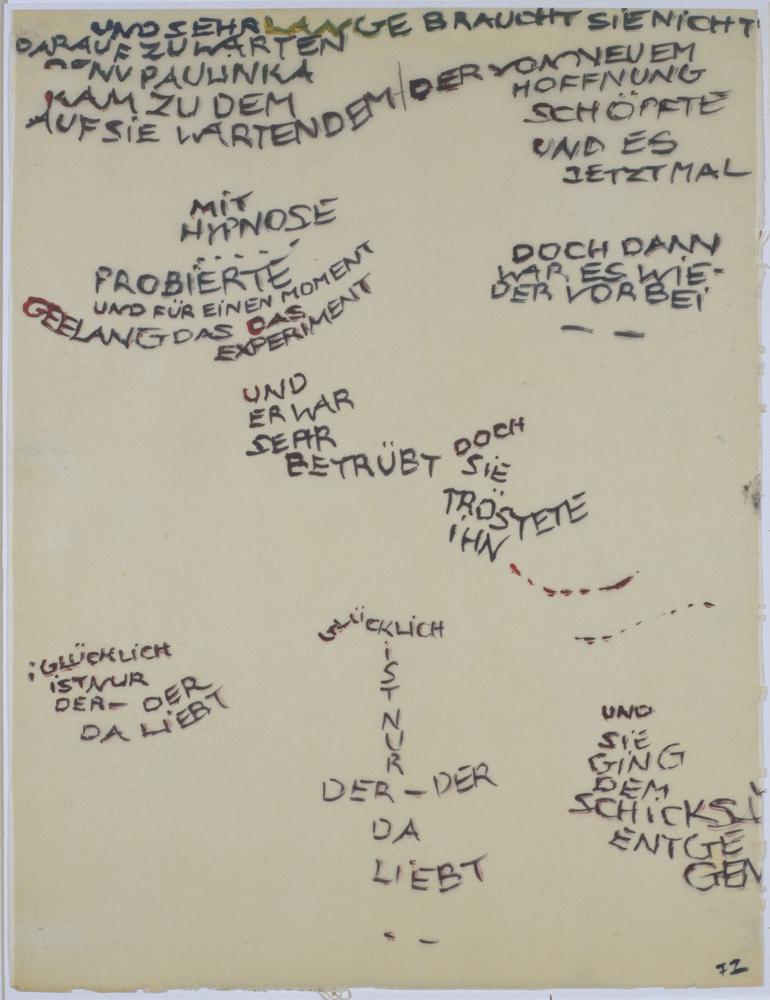 UND SEHR LANGE BRAUCHT SIE NICHT
DARAUF ZU WARTEN
DENN PAULINKA
KAM ZU DEM
AUF SIE WARTENDEM / DER VON NEUEM
HOFFNUNG
SCHÖPFTE
UND ES
JETZT MAL
MIT
HYPNOSE
PROBIERTE
UND FÜR EINEN MOMENT
GEELANG DAS DAS
EXPERIMENT
DOCH DANN
WAR ES WIE-
DER VORBEI
— —
UND
ER WAR
SEHR
BETRÜBT DOCH
SIE
TRÖSTETE
IHN
GLÜCKLICH
IST NUR
DER- DER
DA LIEBT
GLÜCKLICH
IST
NUR
DER – DER
DA
LIEBT
UND
SIE
GING
DEM
SCHICKSA
ENTGE
GEN
72